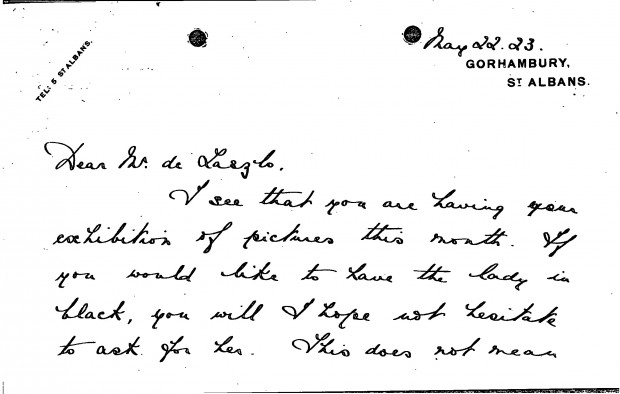 TEL: 5 ST ALBANS.
May 22.23.
GORHAMBURY,
ST ALBANS.
Dear Mr. de Laszlo.
I see that you are having your
exhibition of pictures this month. If
you would like to have the lady in
black, you will I hope not hesitate
to ask for her. This does not mean